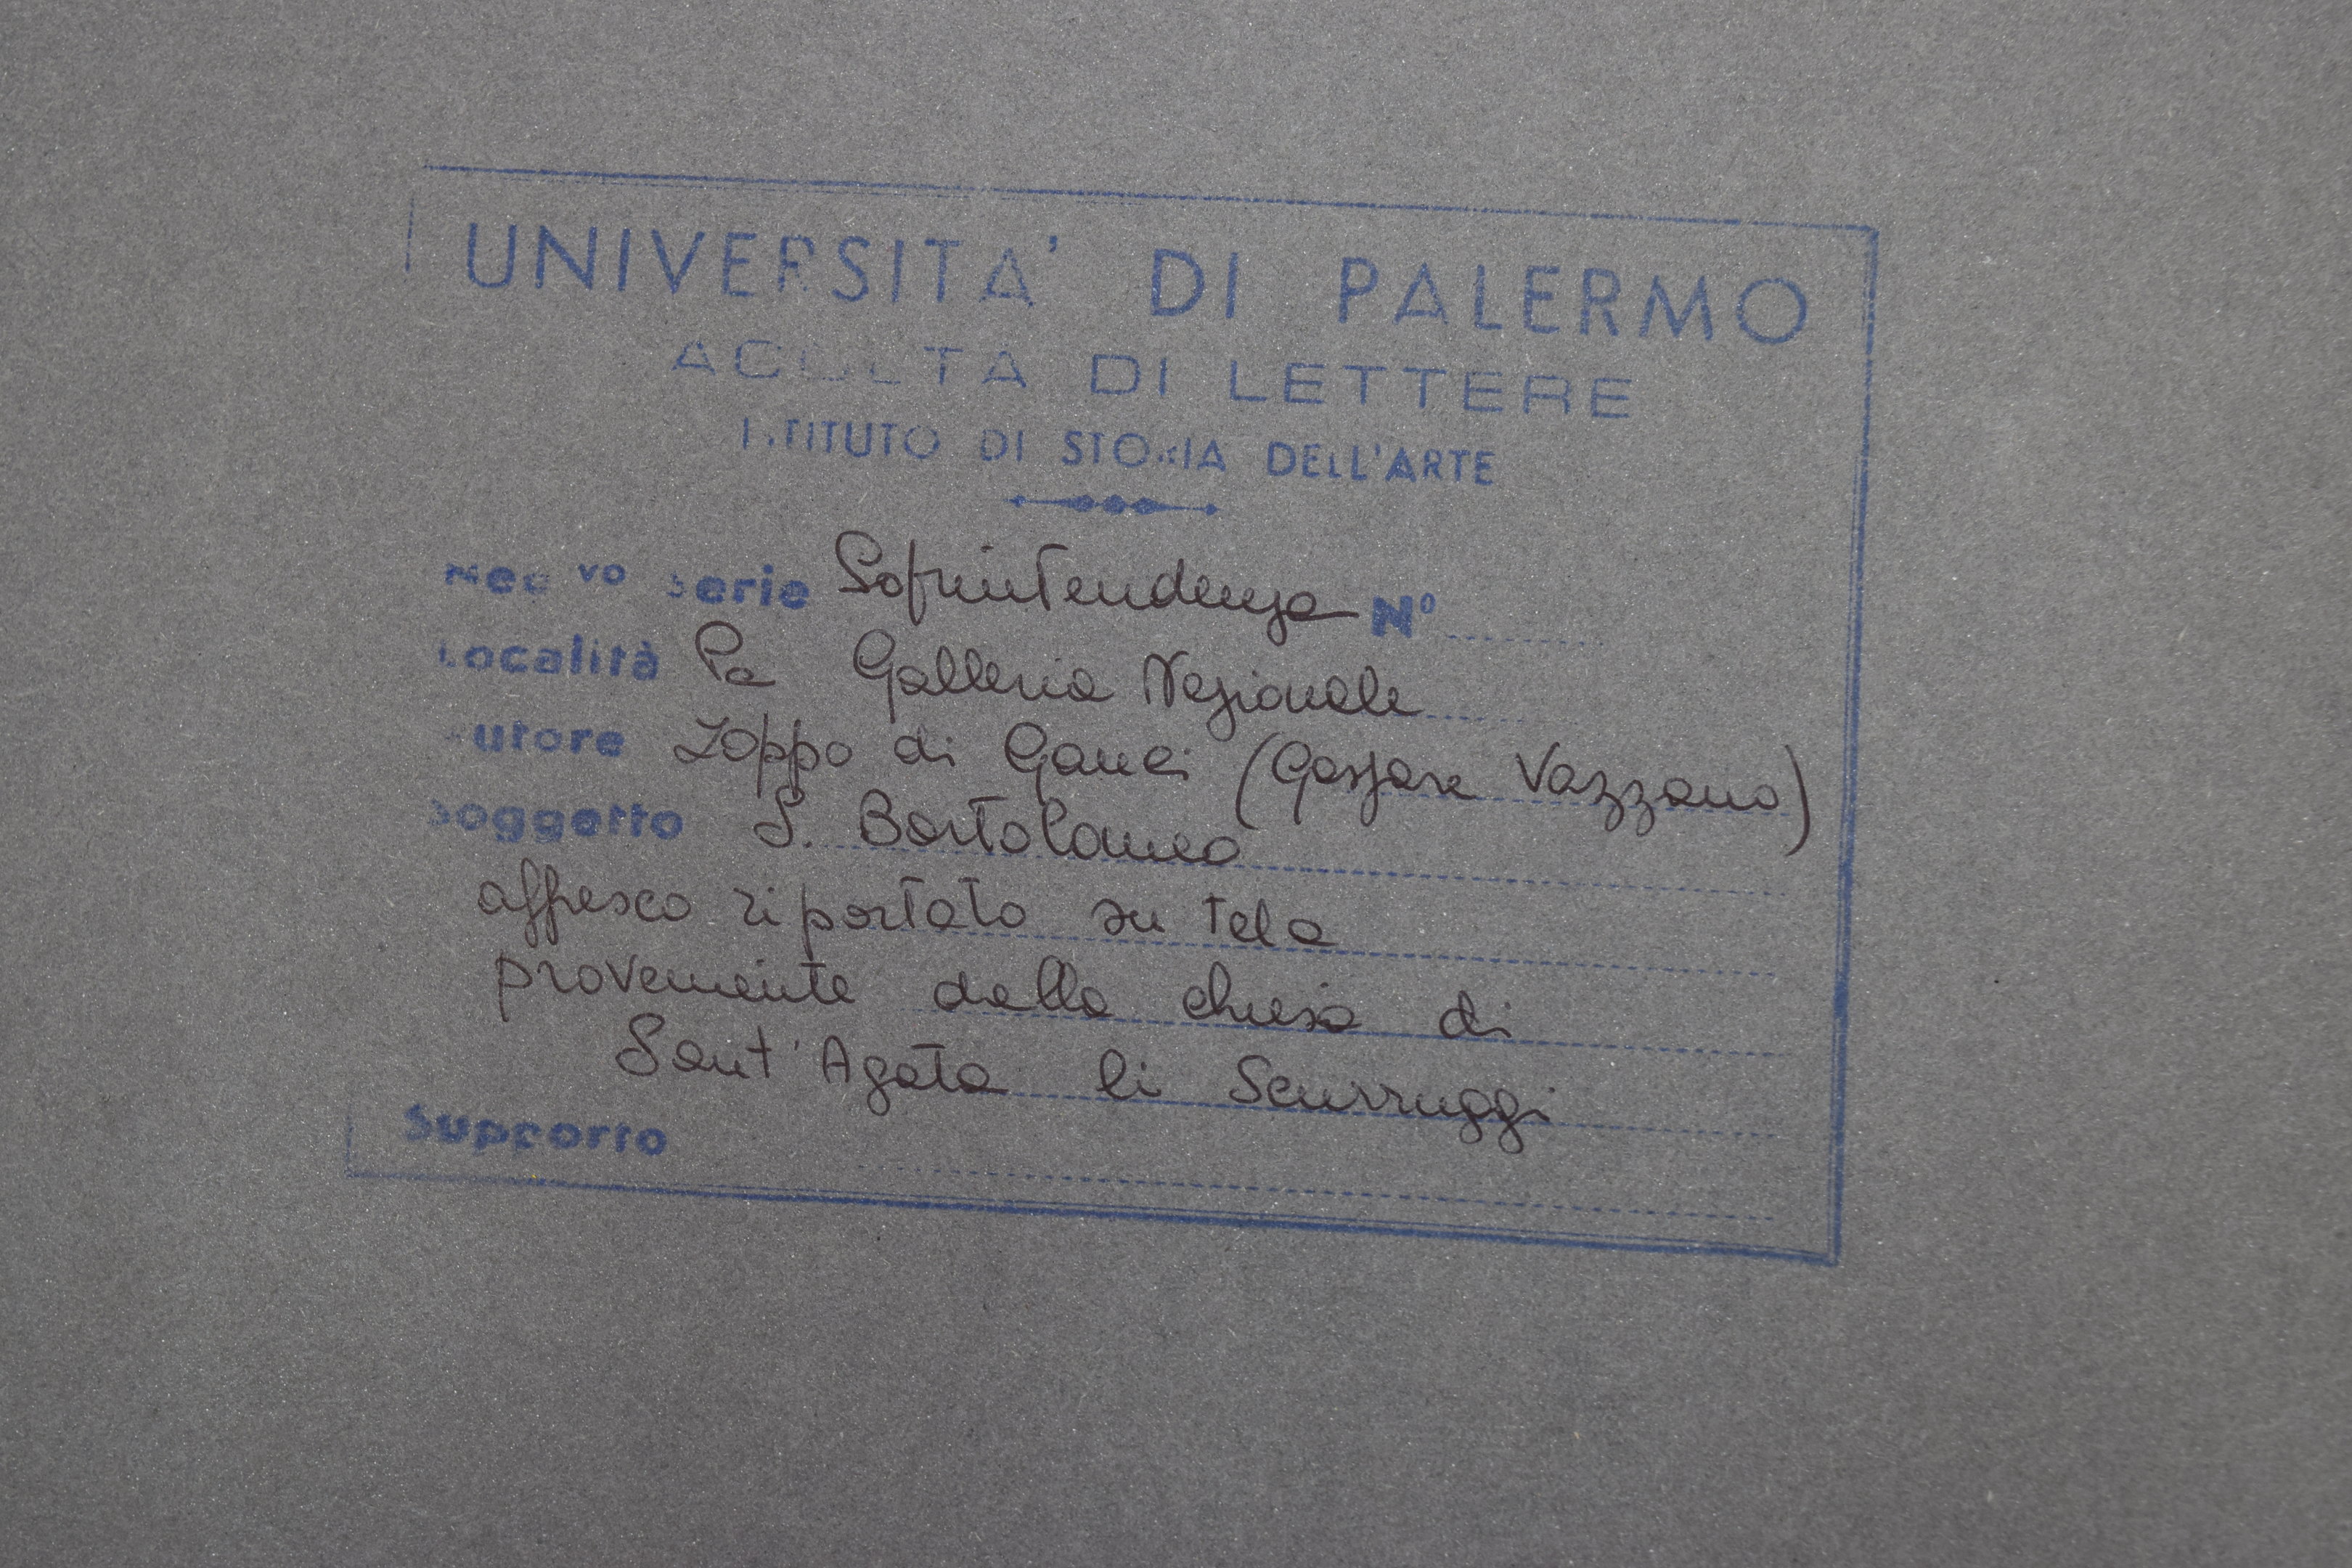 UNIVERSITA' DI PALERMO
ACOLTA DI LETTERE
ISTITUTO DI STORIA DELL'ARTE
Neg vo Serie Soprintendenza N°
Località Pa Galleria Nazionale
Autore Zoppo di Ganci (Gaspare Vazzano)
Soggetto S. Bartolomeo
affresco riportato su tela
proveniente dalla chiesa di
Sant'Agata li Scurruggi
Supporto